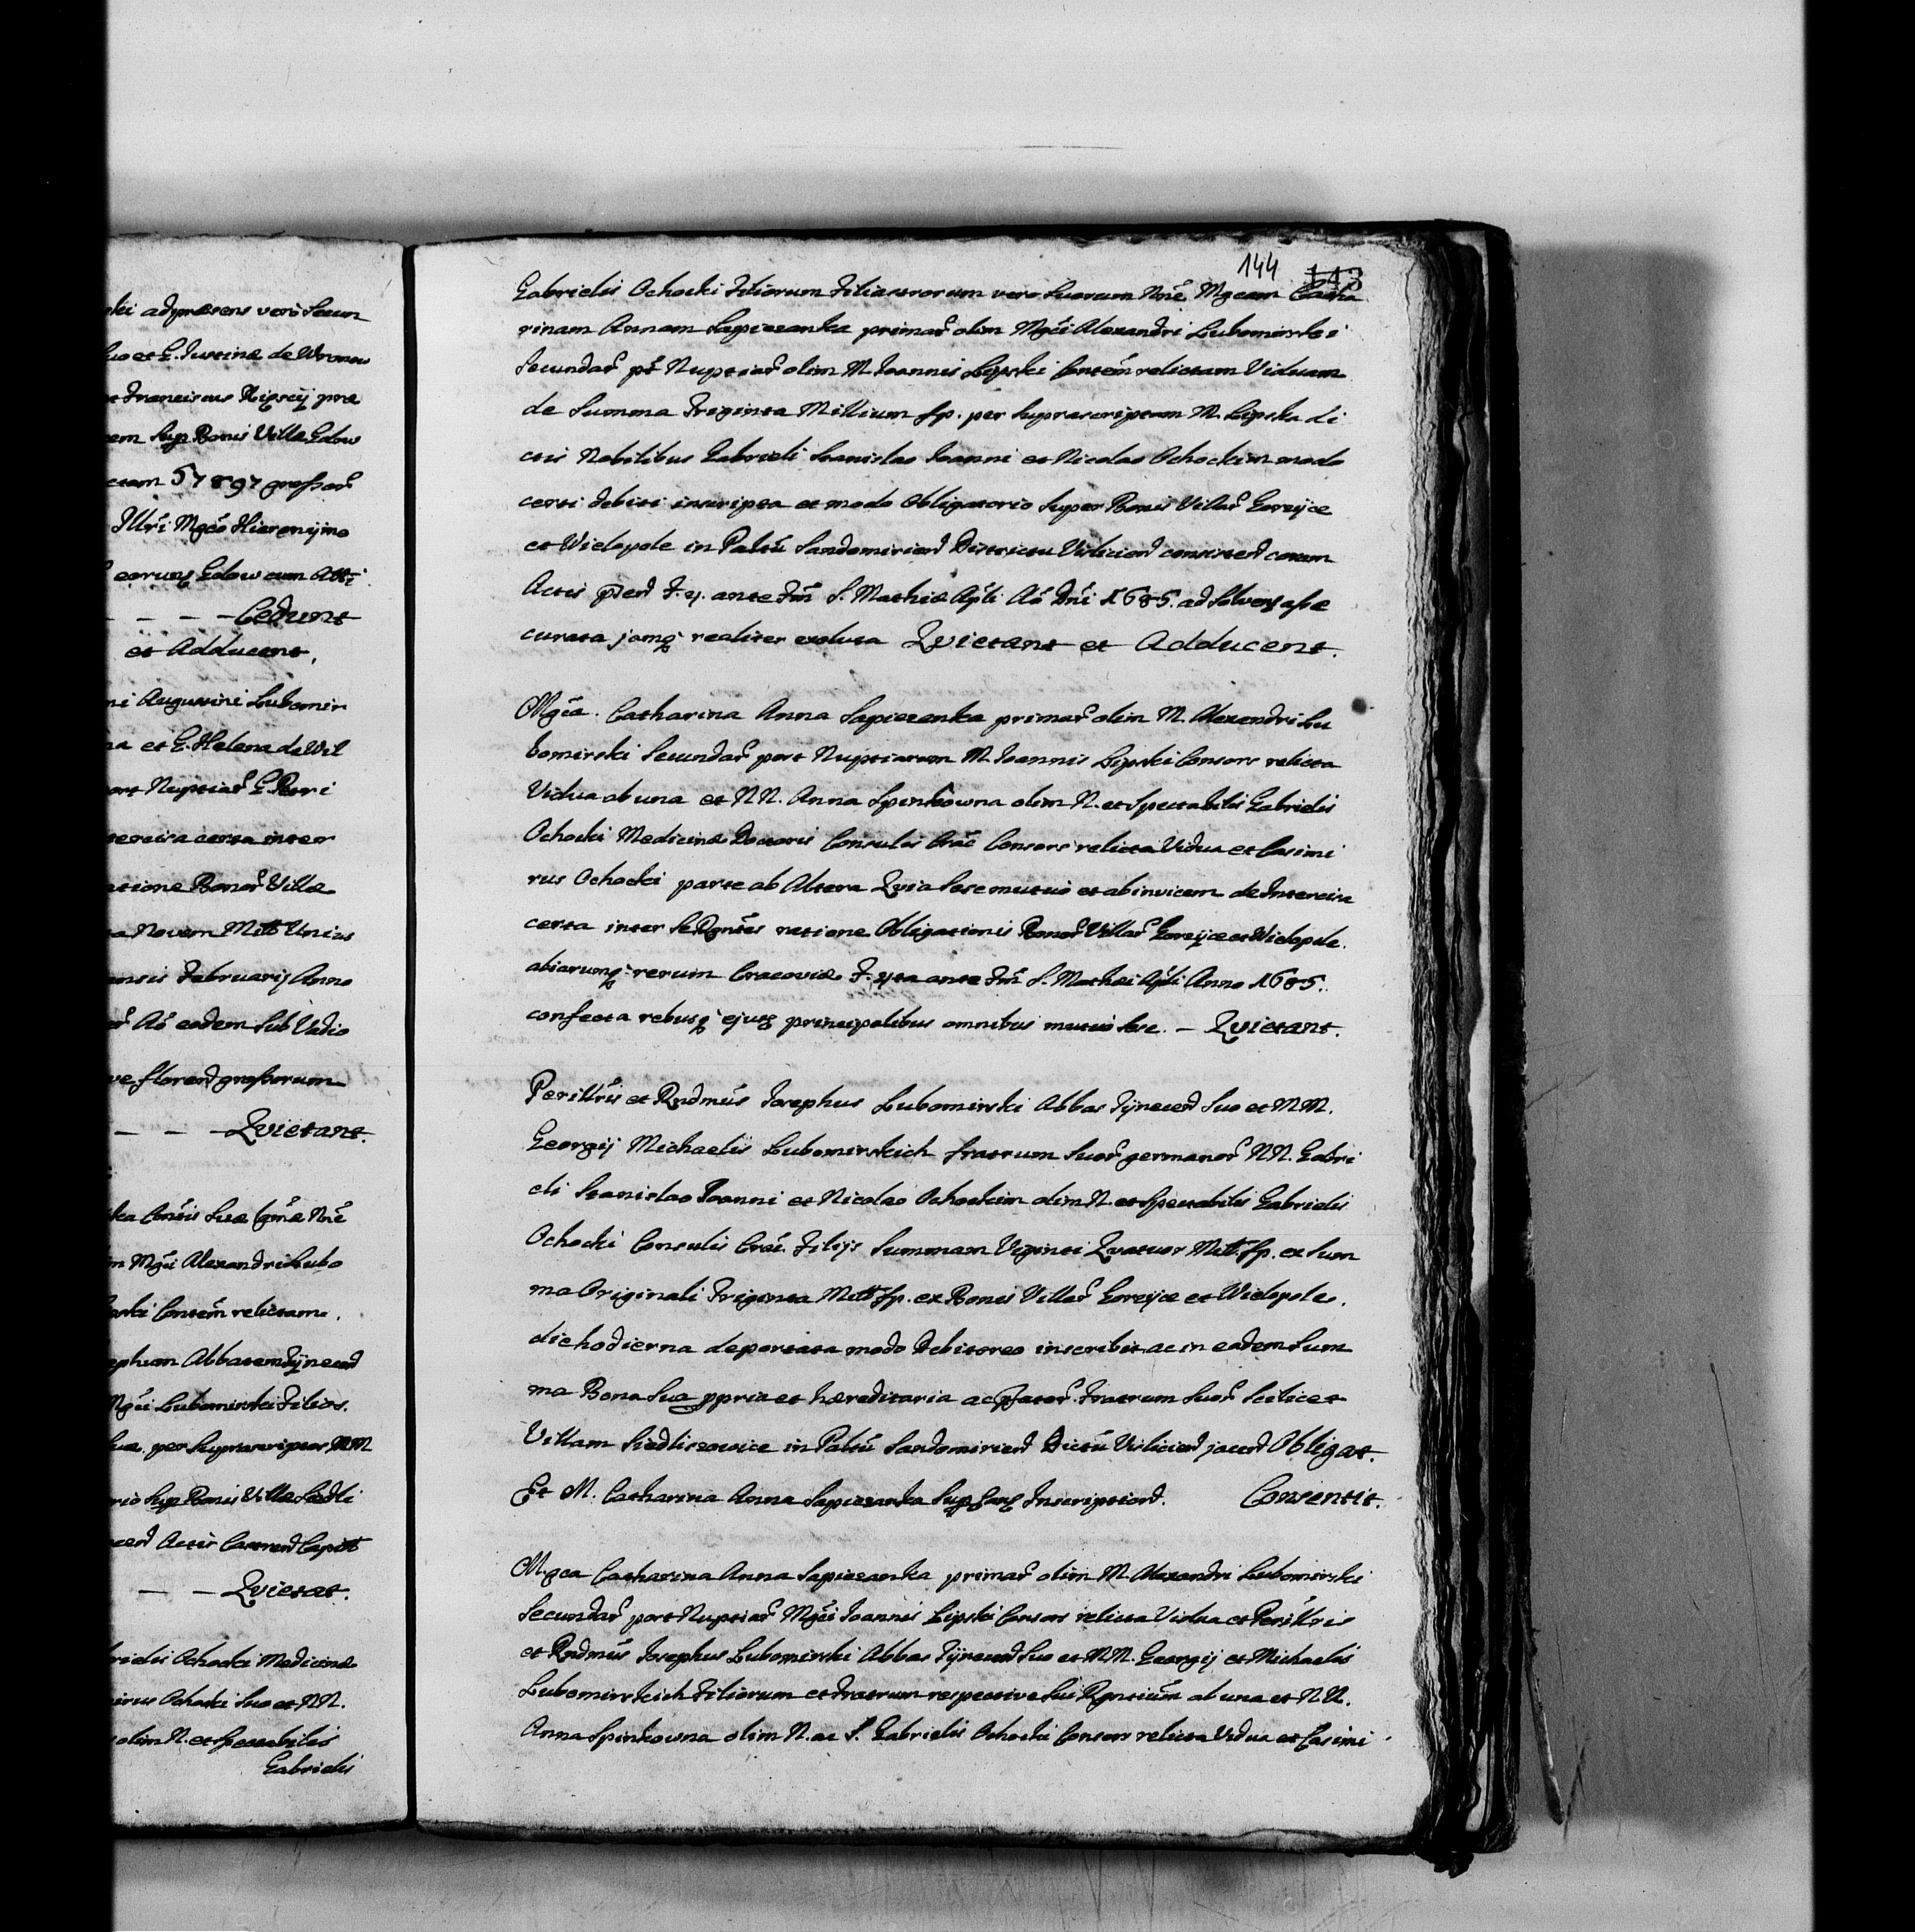 ki adpraesens vero Secun
suo et G. Justinae de Wronow
et Franciscus Ripscij prae
em sup Bonis Villae Gdow
ctam 57897 grossor
Illri Mgco Hieronijmo
eorung Gdow cum Atti
– – – Cedunt
et Adducent.
ni Augustini Lubomir
na et G. Helena de Wil
ort Nuptiar G. Petri
tercisa certa inter
atione Bonor Villae
ta Novem Mill Unius
ensis Februarij Anno
Ao eodem sub Vadio
ve floren grossorum
– – – Qvietant.
ka Contis Suae Nne
m Mgci Alexandri Lubo
ski Contem relictam.
ephum Abbatem Tÿnecen
Mgci Lubomirski Filios.
suae per suprascriptos MM
rio sup Bonis Villae Siedli
cen Actis Castren Capit
– – Qvietat.
brielis Ochocki Medicinae
irus Ochocki Suo et NN.
olim N. et Spectabilis
Gabrielis
144 143
Gabrielis Ochocki Filiorum Filiastrorum vero Suorum Nne Mgcam Catha
rinam Annam Sapiezanka primar olim Mgci Alexandri Lubomirski
Secundar pt Nuptiar olim M. Joannis Lipski Contem relictam Viduam
de Summa Triginta Millium fp. per Suprascriptam M. Lipska di
ctis Nobilibus Gabrieli Stanislao Joanni et Nicolao Ochockim modo
certi debiti inscripta et modo Obligatorio super Bonis Villar Goryce
et Wielopole in Paltu Sandomirien Districtu Vislicien consisten coram
Actis pñ F. 4. ante Fm S. Mathiae Apli Ao Dni 1685. ad solven asse
curata jamq realiter exoluta Qvietant et Adducent.
Mgca. Catharina Anna Sapiezanka primar olim M. Alexandri Lu
bomirski Secundar post Nuptiarum M. Joannis Lipski Consors relicta
Vidua ab una et NN. Anna Spinkowna olim N. et Spectabilis Gabrielis
Ochocki Medicinae Doctoris Consulis Crac Consors relicta Vidua et Casimi
rus Ochocki parte ab Altera Qvia sese mutuo et ab invicem de Intercisa
certa inter se Rgntes ratione Obligationis Bonor Villar Goryce et Wielopole.
aliarumq rerum Cracoviae F. 4ta ante Fm S. Mathaei Apli Anno 1685.
confecta rebusq ejus principalibus omnibus mutuo sese. – Qvietant.
Perillris et Rndmus Josephus Lubomirski Abbas Tÿnecen Suo et MM.
Georgij Michaelis Lubomirskich fratrum suor germanor NN. Gabri
eli Stanislao Joanni et Nicolao Ochockim olim N. et Spectabilis Gabrielis
Ochocki Consulis Crac. Filijs Summam Viginti Qvatuor Mill. fp. ex Sum
ma Originali Triginta Mill fp. ex Bonis Villar Goryce et Wielopole.
die hodierna deportata modo Debitoreo inscribit ac in eadem Sum
ma Bona Sua ppria et haereditaria ac pfator Fratrum Suor Scilicet
Villam Siedliszowice in Paltu Sandomirien Dictu Vislicien jacen Obligat.
Et M. Catharina Anna Sapiezanka Sup hanc Inscription. Consentit.
M.gca Catharina Anna Sapiezanka primar olim M. Alexandri Lubomirski
Secundar post Nuptiar Mgci Joannis Lipski Consors relicta Vidua et Perillris
et Rndmus Josephus Lubomirski Abbas Tÿnecen Suo et MM. Georgij et Michaelis
Lubomirskich Filiorum et Fratrum respective sui Rgntium ab una et NN.
Anna Spinkowna olim N. ac S. Gabrielis Ochocki Consors relicta Vidua et Casimi